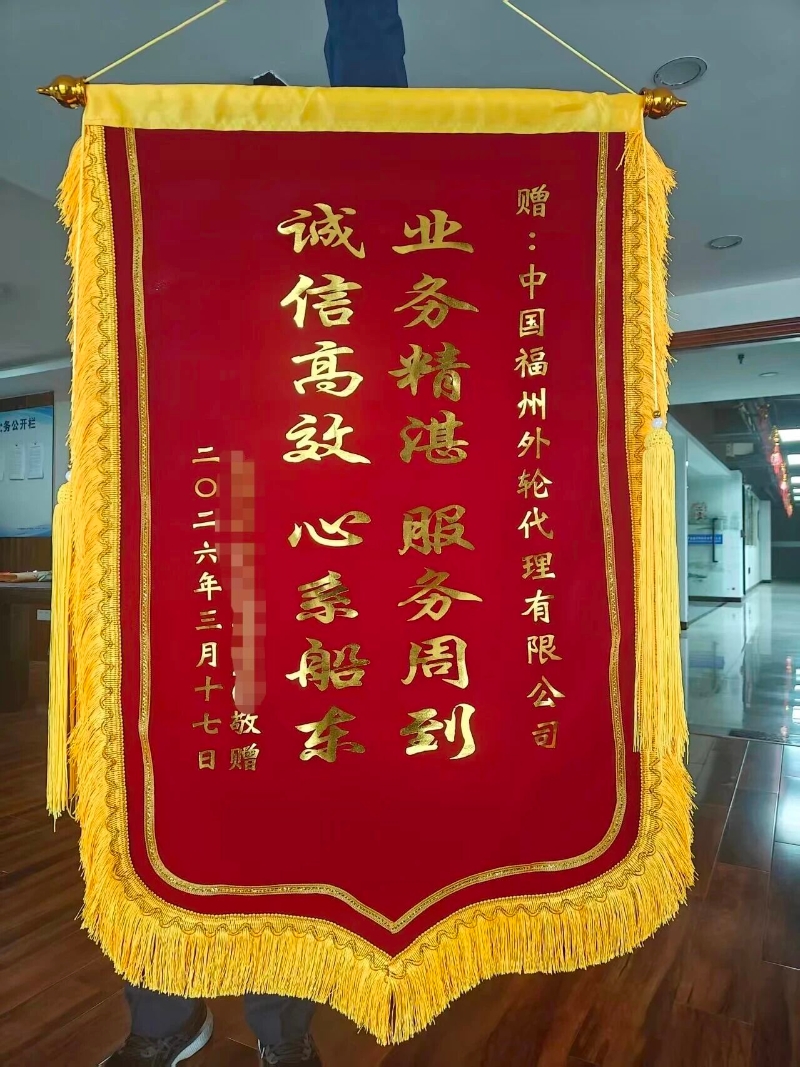 赠：中国福州外轮代理有限公司
业务精湛 服务周到
诚信高效 心系船东
敬赠
二〇二六年三月十七日
务公开栏